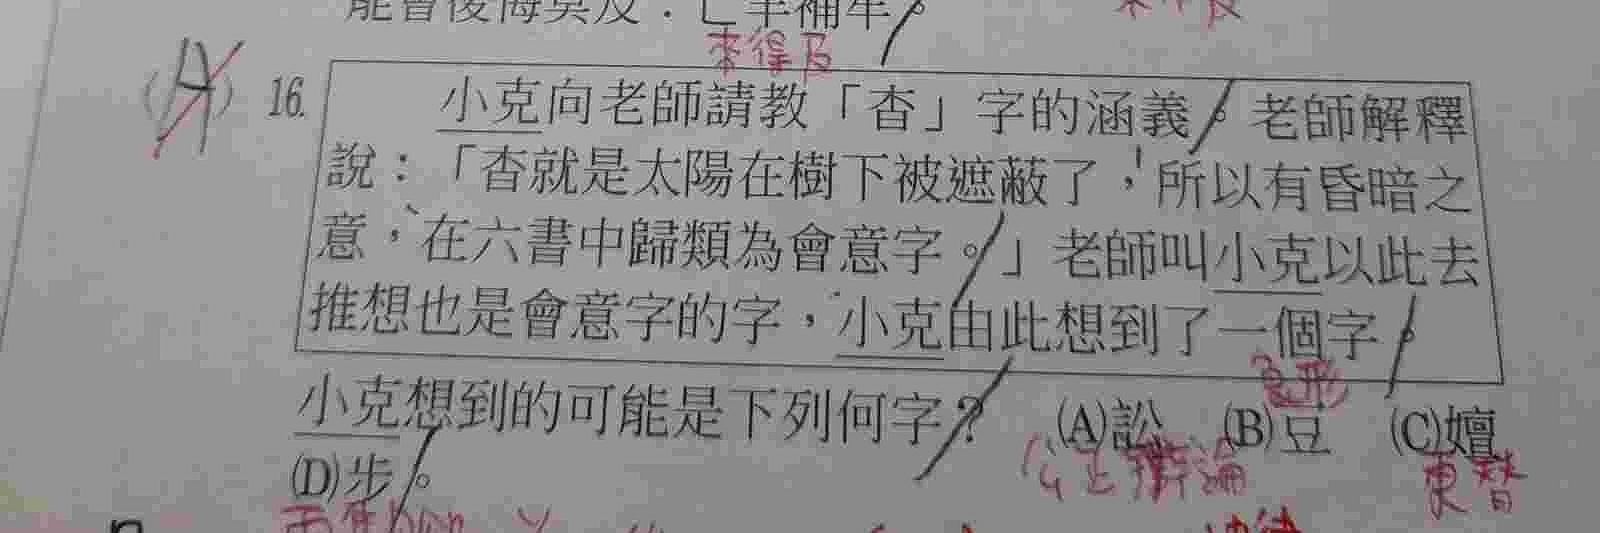 能會後悔莫及：亡羊補牢。
來得及
16.
小克向老師請教「杳」字的涵義。老師解釋
說：「杳就是太陽在樹下被遮蔽了，所以有昏暗之
意，在六書中歸類為會意字。」老師叫小克以此去
推想也是會意字的字，小克由此想到了一個字。
象形
小克想到的可能是下列何字？ (A)訟 (B)豆 (C)嬗
(D)步。